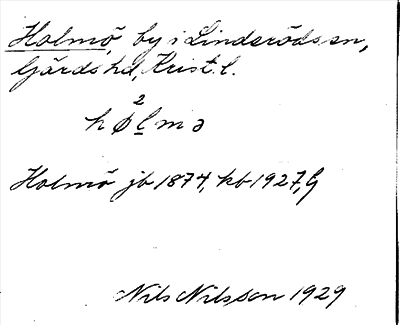 Holmö, by i Linderöds sn,
Gärds hd, Krist. l.
2
h ø l m ə
Holmö jb 1874, kb 1927, G
Nils Nilsson 1929